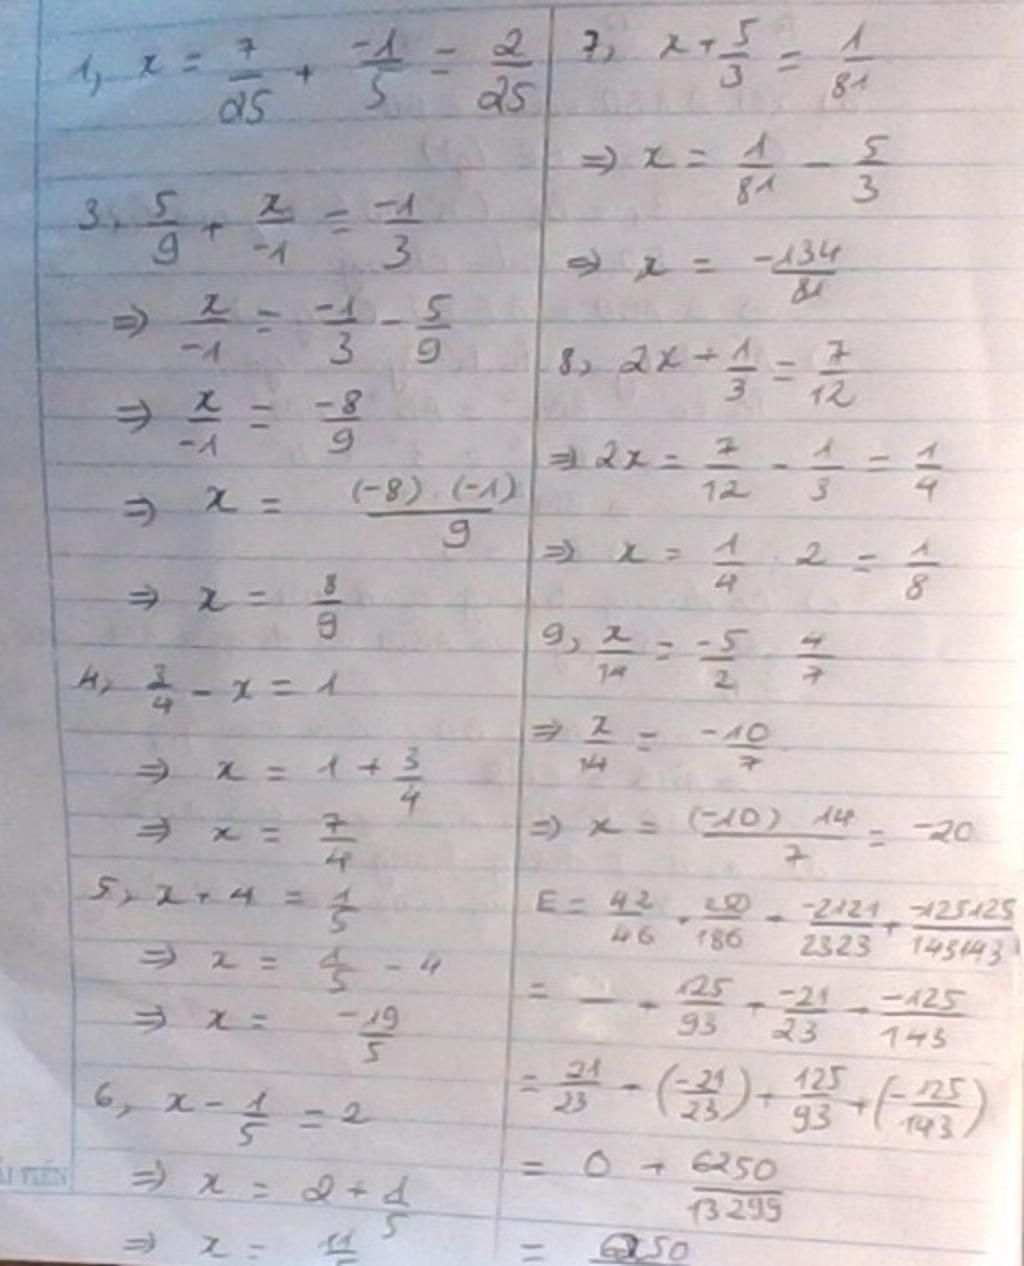 1, x = 7/25 + -1/5 = 2/25
3, 5/9 + x/-1 = -1/3
=> x/-1 = -1/3 - 5/9
=> x/-1 = -8/9
=> x = (-8) . (-1)/9
=> x = 8/9
4, 3/4 - x = 1
=> x = 1 + 3/4
=> x = 7/4
5, x + 4 = 1/5
=> x = 1/5 - 4
=> x = -19/5
6, x - 1/5 = 2
=> x = 2 + 1/5
=> x = 11/
7, x + 5/3 = 1/81
=> x = 1/81 - 5/3
=> x = -134/81
8, 2x + 1/3 = 7/12
=> 2x = 7/12 - 1/3 = 1/4
=> x = 1/4 . 2 = 1/8
9, x/14 = -5/2 . 4/7
=> x/14 = -10/7
=> x = (-10) . 14/7 = -20
E = 42/46 + 250/186 + -2121/2323 + -125125/143143
= — + 125/93 + -21/23 + -125/143
= 21/23 + (-21/23) + 125/93 + (-125/143)
= 0 + 6250/13299
= 6250